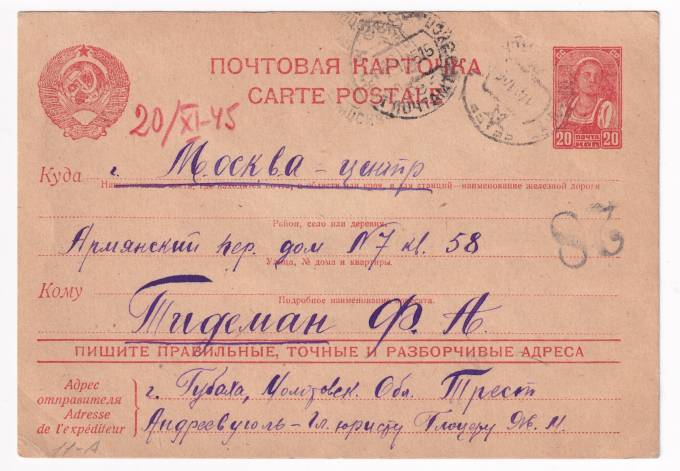 ПОЧТОВАЯ КАРТОЧКА
CARTE POSTALE
20/XI-45
20 ПОЧТА 20
КОП
Куда г. Москва - центр
Наименование места, где находится почта, и области или края, а для станций - наименование железной дороги
Район, село или деревня
Армянский пер. дом N7 кв. 58
Улица, № дома и квартиры.
28
Кому
Подробное наименование адресата.
Тидеман Ф. А.
ПИШИТЕ ПРАВИЛЬНЫЕ, ТОЧНЫЕ И РАЗБОРЧИВЫЕ АДРЕСА
Адрес
отправителя
Adresse
de l'expéditeur
г. Губаха, Молотовск. Обл. Трест
Андреевуголь - Гл. юристу Плоцеру Дж. М.
11-А